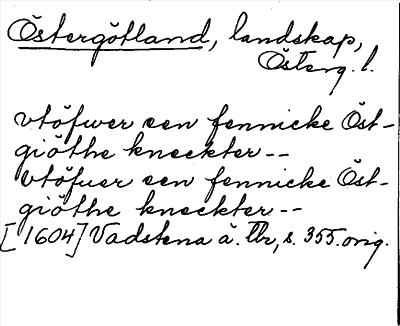 Östergötland, landskap,
Österg. l.
vtöfwer een fennicke Öst-
giöthe kneckter--
vtöfuer een fennicke Öst-
giöthe kneckter--
[1604] Vadstena ä. Tbr, s. 355. orig.